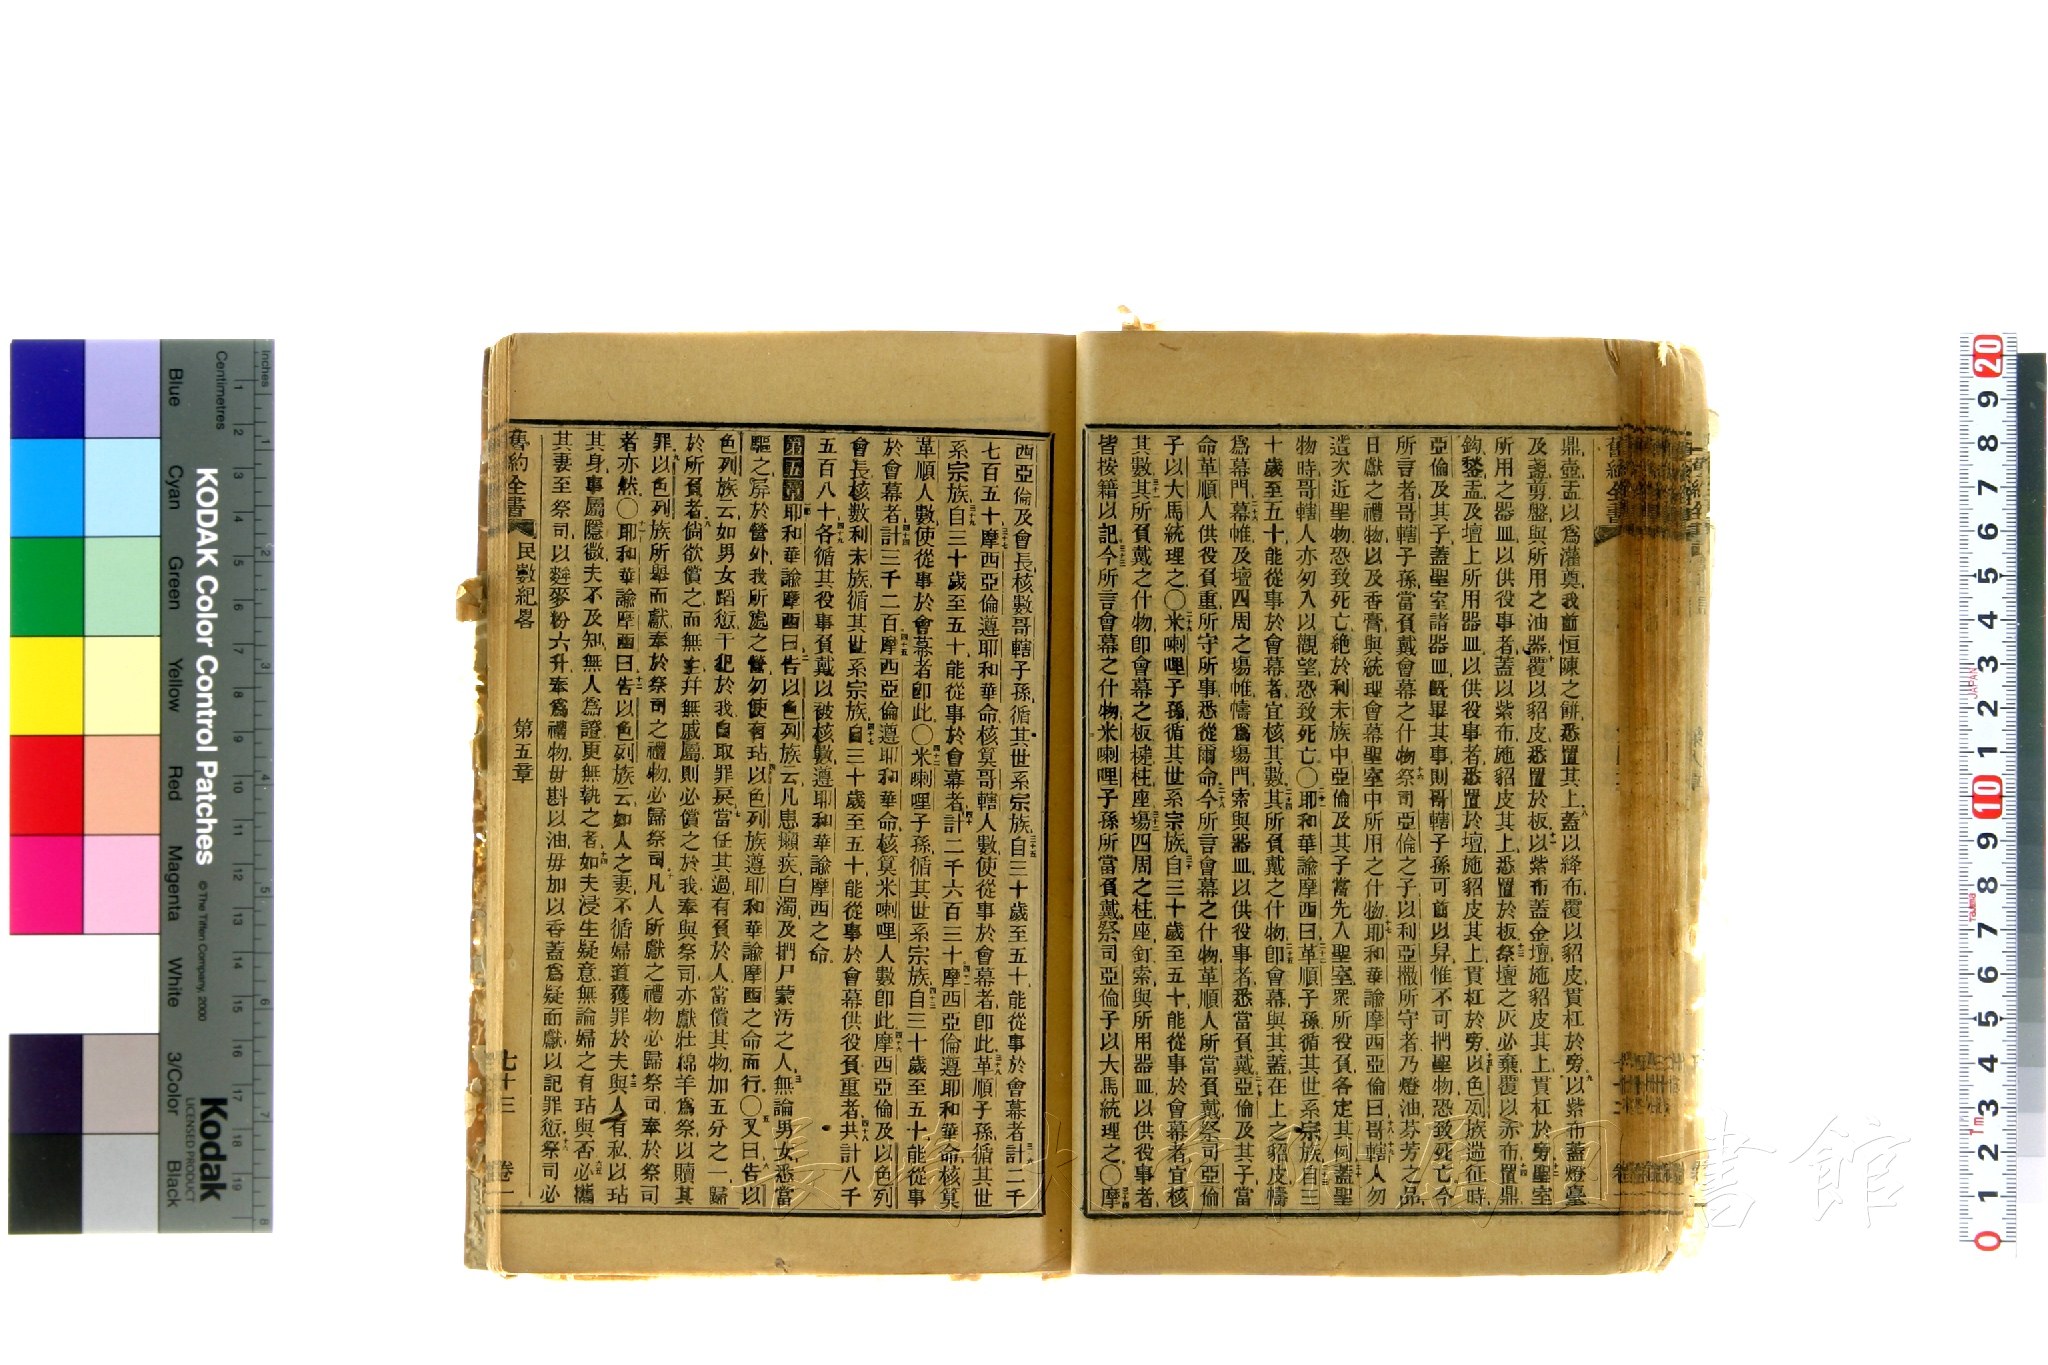 鼎壺盂以爲灌奠我前恒陳之餅悉置其上蓋以絳布覆以貂皮貫杠於旁以紫布蓋燈臺
及盞剪盤與所用之油器覆以貂皮悉置於板以紫布蓋金壇施貂皮其上貫杠於旁聖室
所用之器皿以供役事者蓋以紫布施貂皮其上悉置於板祭壇之灰必棄覆以赤布置鼎
鈎鍫盂及壇上所用器皿以供役事者悉置於壇施貂皮其上貫杠於旁以色列族遄征時
亞倫及其子蓋聖室諸器皿既畢其事則哥轄子孫可前以舁惟不可捫聖物恐致死亡今
所言者哥轄子孫當負戴會幕之什物祭司亞倫之子以利亞撒所守者乃燈油芬芳之品
日獻之禮物以及香膏與統理會幕聖室中所用之什物耶和華諭摩西亞倫曰哥轄人勿
造次近聖物恐致死亡絕於利未族中亞倫及其子當先入聖室衆所役負各定其例蓋聖
物時哥轄人亦勿入以觀望恐致死亡〇耶和華諭摩西曰革順子孫循其世系宗族自三
十歲至五十能從事於會幕者宜核其數其所負戴之什物卽會幕與其蓋在上之貂皮幬
爲幕門幕帷及壇四周之場帷幬爲場門索與器皿以供役事者悉當負戴亞倫及其子當
命革順人供役負重所守所事悉從爾命今所言會幕之什物革順人所當負戴祭司亞倫
子以大馬統理之〇米喇哩子孫循其世系宗族自三十歲至五十能從事於會幕者宜核
其數其所負戴之什物卽會幕之板槤柱座場四周之柱座釘索與所用器皿以供役事者
皆按籍以記今所言會幕之什物米喇哩子孫所當負戴祭司亞倫子以大馬統理之〇摩
西亞倫及會長核數哥轄子孫循其世系宗族自三十歲至五十能從事於會幕者計二千
七百五十摩西亞倫遵耶和華命核算哥轄人數使從事於會幕者卽此革順子孫循其世
系宗族自三十歲至五十能從事於會幕者計二千六百三十摩西亞倫遵耶和華命核算
革順人數使從事於會幕者卽此〇米喇哩子孫循其世系宗族自三十歲至五十能從事
於會幕者計三千二百摩西亞倫遵耶和華命核算米喇哩人數卽此摩西亞倫及以色列
會長核數利未族循其世系宗族自三十歲至五十能從事於會幕供役負重者共計八千
五百八十各循其役事負戴以被核數遵耶和華諭摩西之命
第五章耶和華諭摩西曰告以色列族云凡患癩疾白濁及捫尸蒙汚之人無論男女悉當
驅之屛於營外我所處之營勿使有玷以色列族遵耶和華諭摩西之命而行〇又曰告以
色列族云如男女蹈愆干犯於我自取罪戾當任其過有負於人當償其物加五分之一歸
於所負者倘欲償之而無主幷無戚屬則必償之於我奉與祭司亦獻牡綿羊爲祭以贖其
罪以色列族所舉而獻奉於祭司之禮物必歸祭司凡人所獻之禮物必歸祭司奉於祭司
者亦然〇耶和華諭摩西曰告以色列族云如人之妻不循婦道獲罪於夫與人有私以玷
其身事屬隱微夫不及知無人爲證更無執之者如夫浸生疑意無論婦之有玷與否必攜
其妻至祭司以麰麥粉六升奉爲禮物毋斟以油毋加以香蓋爲疑而獻以記罪愆祭司必
舊約全書 民數紀畧 第五章 七十三 卷一
KODAK Color Control Patches
© The Tiffen Company, 2000
Kodak
LICENSED PRODUCT
Inches
Centimetres
Blue
Cyan
Green
Yellow
Red
Magenta
White
3/Color
Black
JAPAN